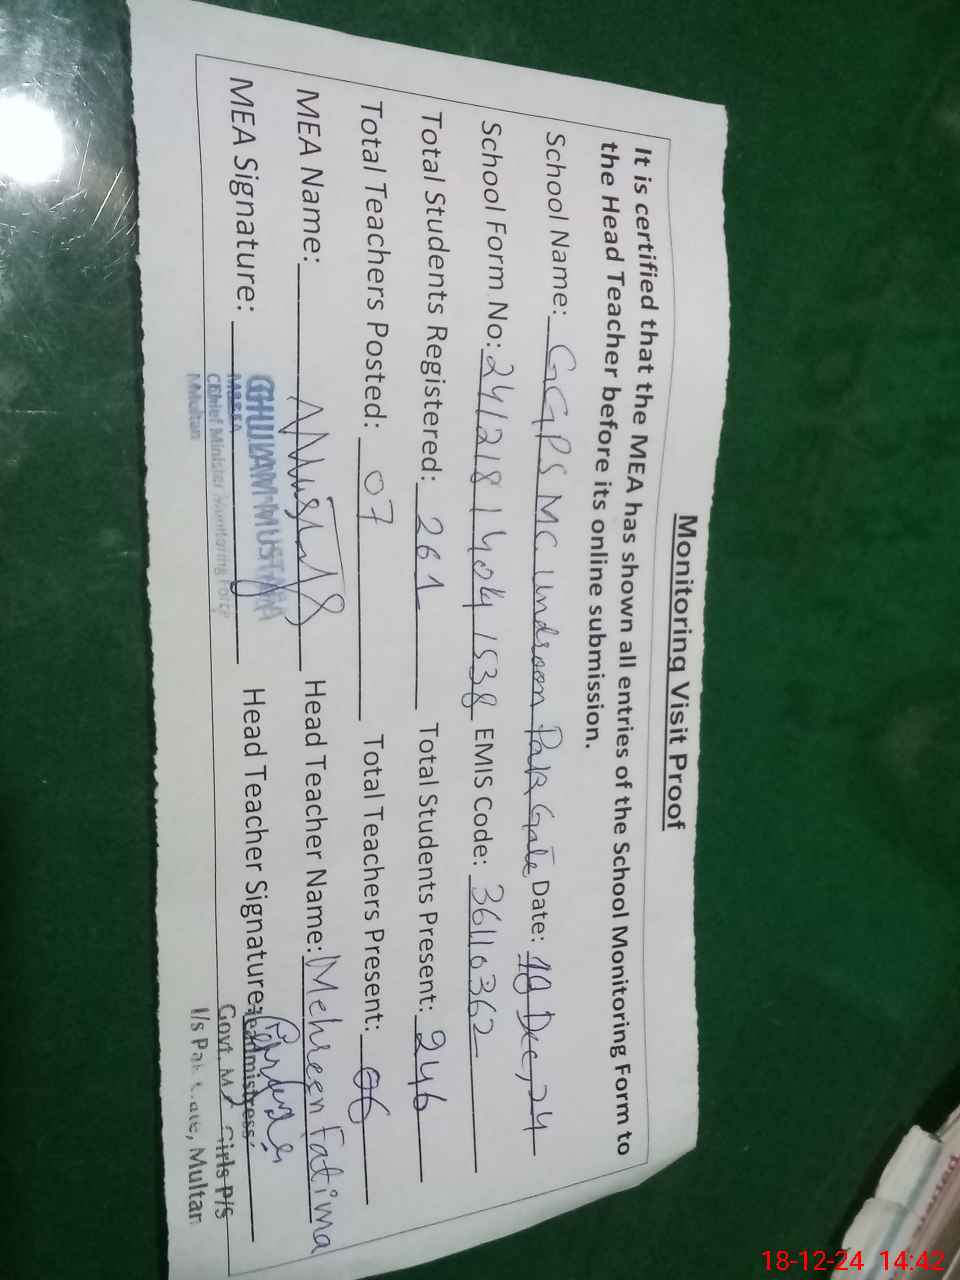 Monitoring Visit Proof
It is certified that the MEA has shown all entries of the School Monitoring Form to
the Head Teacher before its online submission.
School Name: GGPS MC Undroon Pak Gate Date: 18 Dec, 24
School Form No: 24121814041538 EMIS Code: 36110362
Total Students Registered: 261 Total Students Present: 246
Total Teachers Posted: 07 Total Teachers Present: 06
MEA Name: Mustafa Head Teacher Name: Mehreen Fatima
MEA Signature: Head Teacher Signature:
GHULAM MUSTAFA
MEA
Chief Minister Monitoring Force
Multan
Headmistress
Govt. M.C Girls P/S
I/s Pak Gate, Multan
18-12-24 14:42